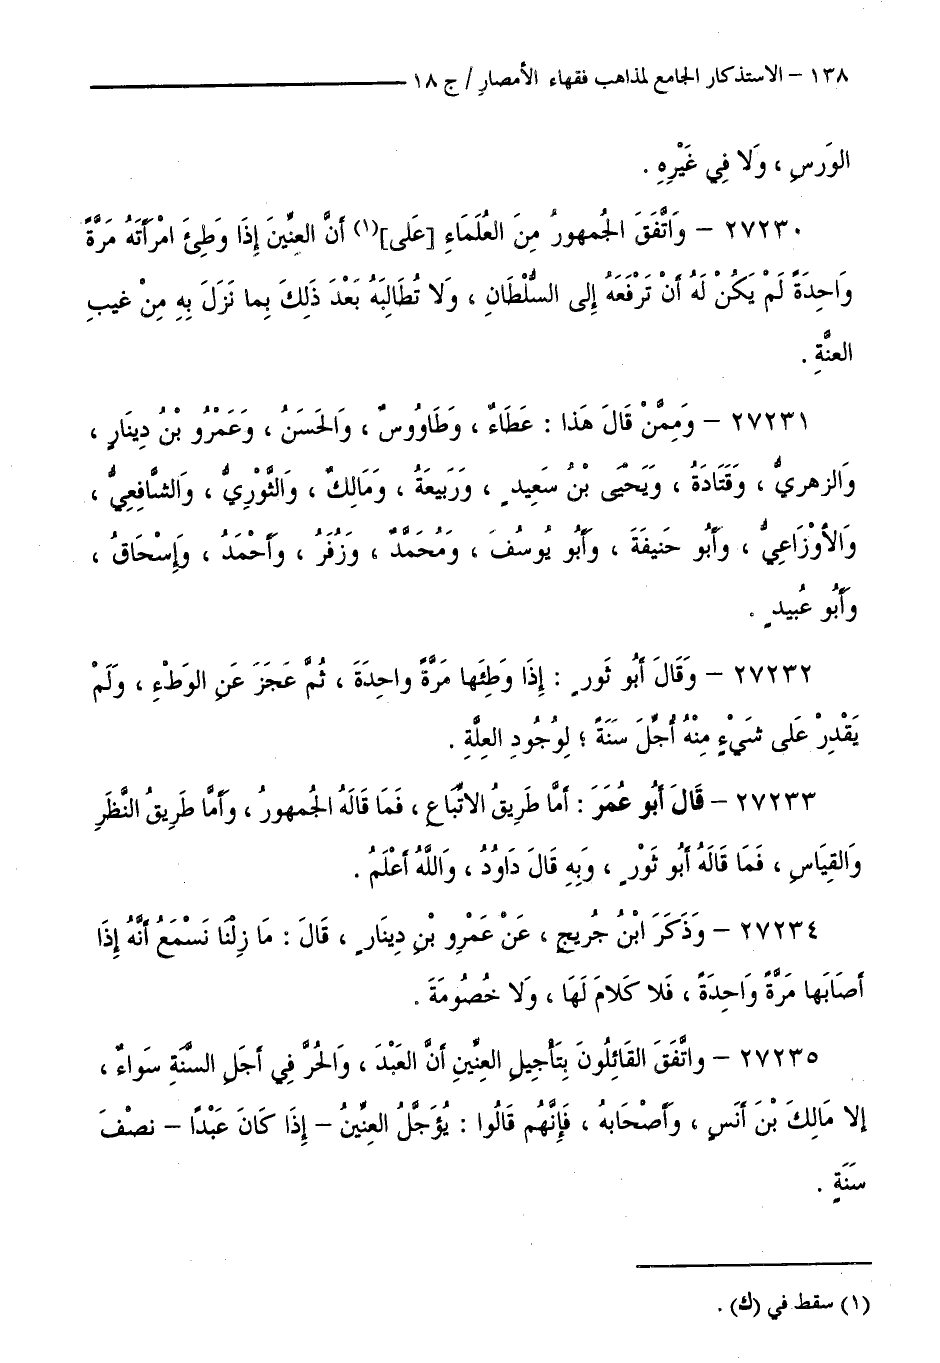 ١٣٨ – الاستذكار الجامع لمذاهب فقهاء الأمصارِ / ج ١٨
الوَرسِ ، وَلا فِي غَيْرِهِ .
٢٧٢٣٠ – وَاتَّفَقَ الجُمهورُ مِنَ العُلَمَاءِ [عَلى](١) أَنَّ العِنِّينَ إِذَا وَطِئَ امْرَأَتَهُ مَرَّةً
وَاحِدَةً لَمْ يَكُنْ لَهُ أَنْ تَرْفَعَهُ إِلى السُّلْطَانِ ، وَلا تُطَالِبَهُ بَعْدَ ذَلِكَ بِما نَزَلَ بِهِ مِنْ غيبِ
العنَّةِ .
٢٧٢٣١ – وَمِمَّنْ قَالَ هَذا : عَطَاءٌ ، وَطَاووسٌ ، وَالحَسَنُ ، وَعَمْرُو بْنُ دِينَارٍ ،
وَالزهريُّ ، وَقَتَادَةُ ، وَيَحْيَى بْنُ سَعِيدٍ ، وَرَبِيعَةُ ، وَمَالِكٌ ، وَالثَّوْرِيُّ ، وَالشَّافِعِيُّ ،
وَالأَوْزَاعِيُّ ، وَأَبُو حَنِيفَةَ ، وَأَبُو يُوسُفَ ، وَمُحَمَّدٌ ، وَزُفَرُ ، وَأَحْمَدُ ، وَإِسْحَاقُ ،
وَأَبُو عُبيدٍ .
٢٧٢٣٢ – وَقَالَ أَبُو ثَورٍ : إِذَا وَطِئَها مَرَّةً واحِدَةَ ، ثُمَّ عَجَزَ عَنِ الوَطْءِ ، وَلَمْ
يَقْدِرْ عَلى شَيْءٍ مِنْهُ أُجِّلَ سَنَةً ؛ لِوُجُودِ العِلَّةِ .
٢٧٢٣٣ – قَالَ أَبُو عُمَرَ : أَمَّا طَرِيقُ الاتِّبَاعِ ، فَمَا قَالَهُ الجُمهورُ ، وَأَمَّا طَرِيقُ النَّظَرِ
وَالقِيَاسِ ، فَمَا قَالَهُ أَبُو ثَوْرٍ ، وَبِهِ قَالَ دَاوُدُ ، وَاللَّهُ أَعْلَمُ .
٢٧٢٣٤ – وَذَكَرَ ابْنُ جُريجٍ ، عَنْ عَمْرِو بْنِ دِينَارٍ ، قَالَ : مَا زِلْنَا نَسْمَعُ أَنَّهُ إِذَا
أَصَابَها مَرَّةً وَاحِدَةً ، فَلا كَلامَ لَهَا ، وَلا خُصُومَةَ .
٢٧٢٣٥ – واتَّفَقَ القَائِلُونَ بِتَأْجِيلِ العِنِّينِ أَنَّ العَبْدَ ، وَالحُرَّ فِي أَجَلِ السَّنَةِ سَواءٌ ،
إِلا مَالِكَ بْنَ أَنَسٍ ، وَأَصْحَابهُ ، فَإِنَّهُم قَالُوا : يُؤَجَّلُ العِنِّينُ – إِذَا كَانَ عَبْدًا – نصْفَ
سَنَةٍ .
(١) سقط في (ك) .